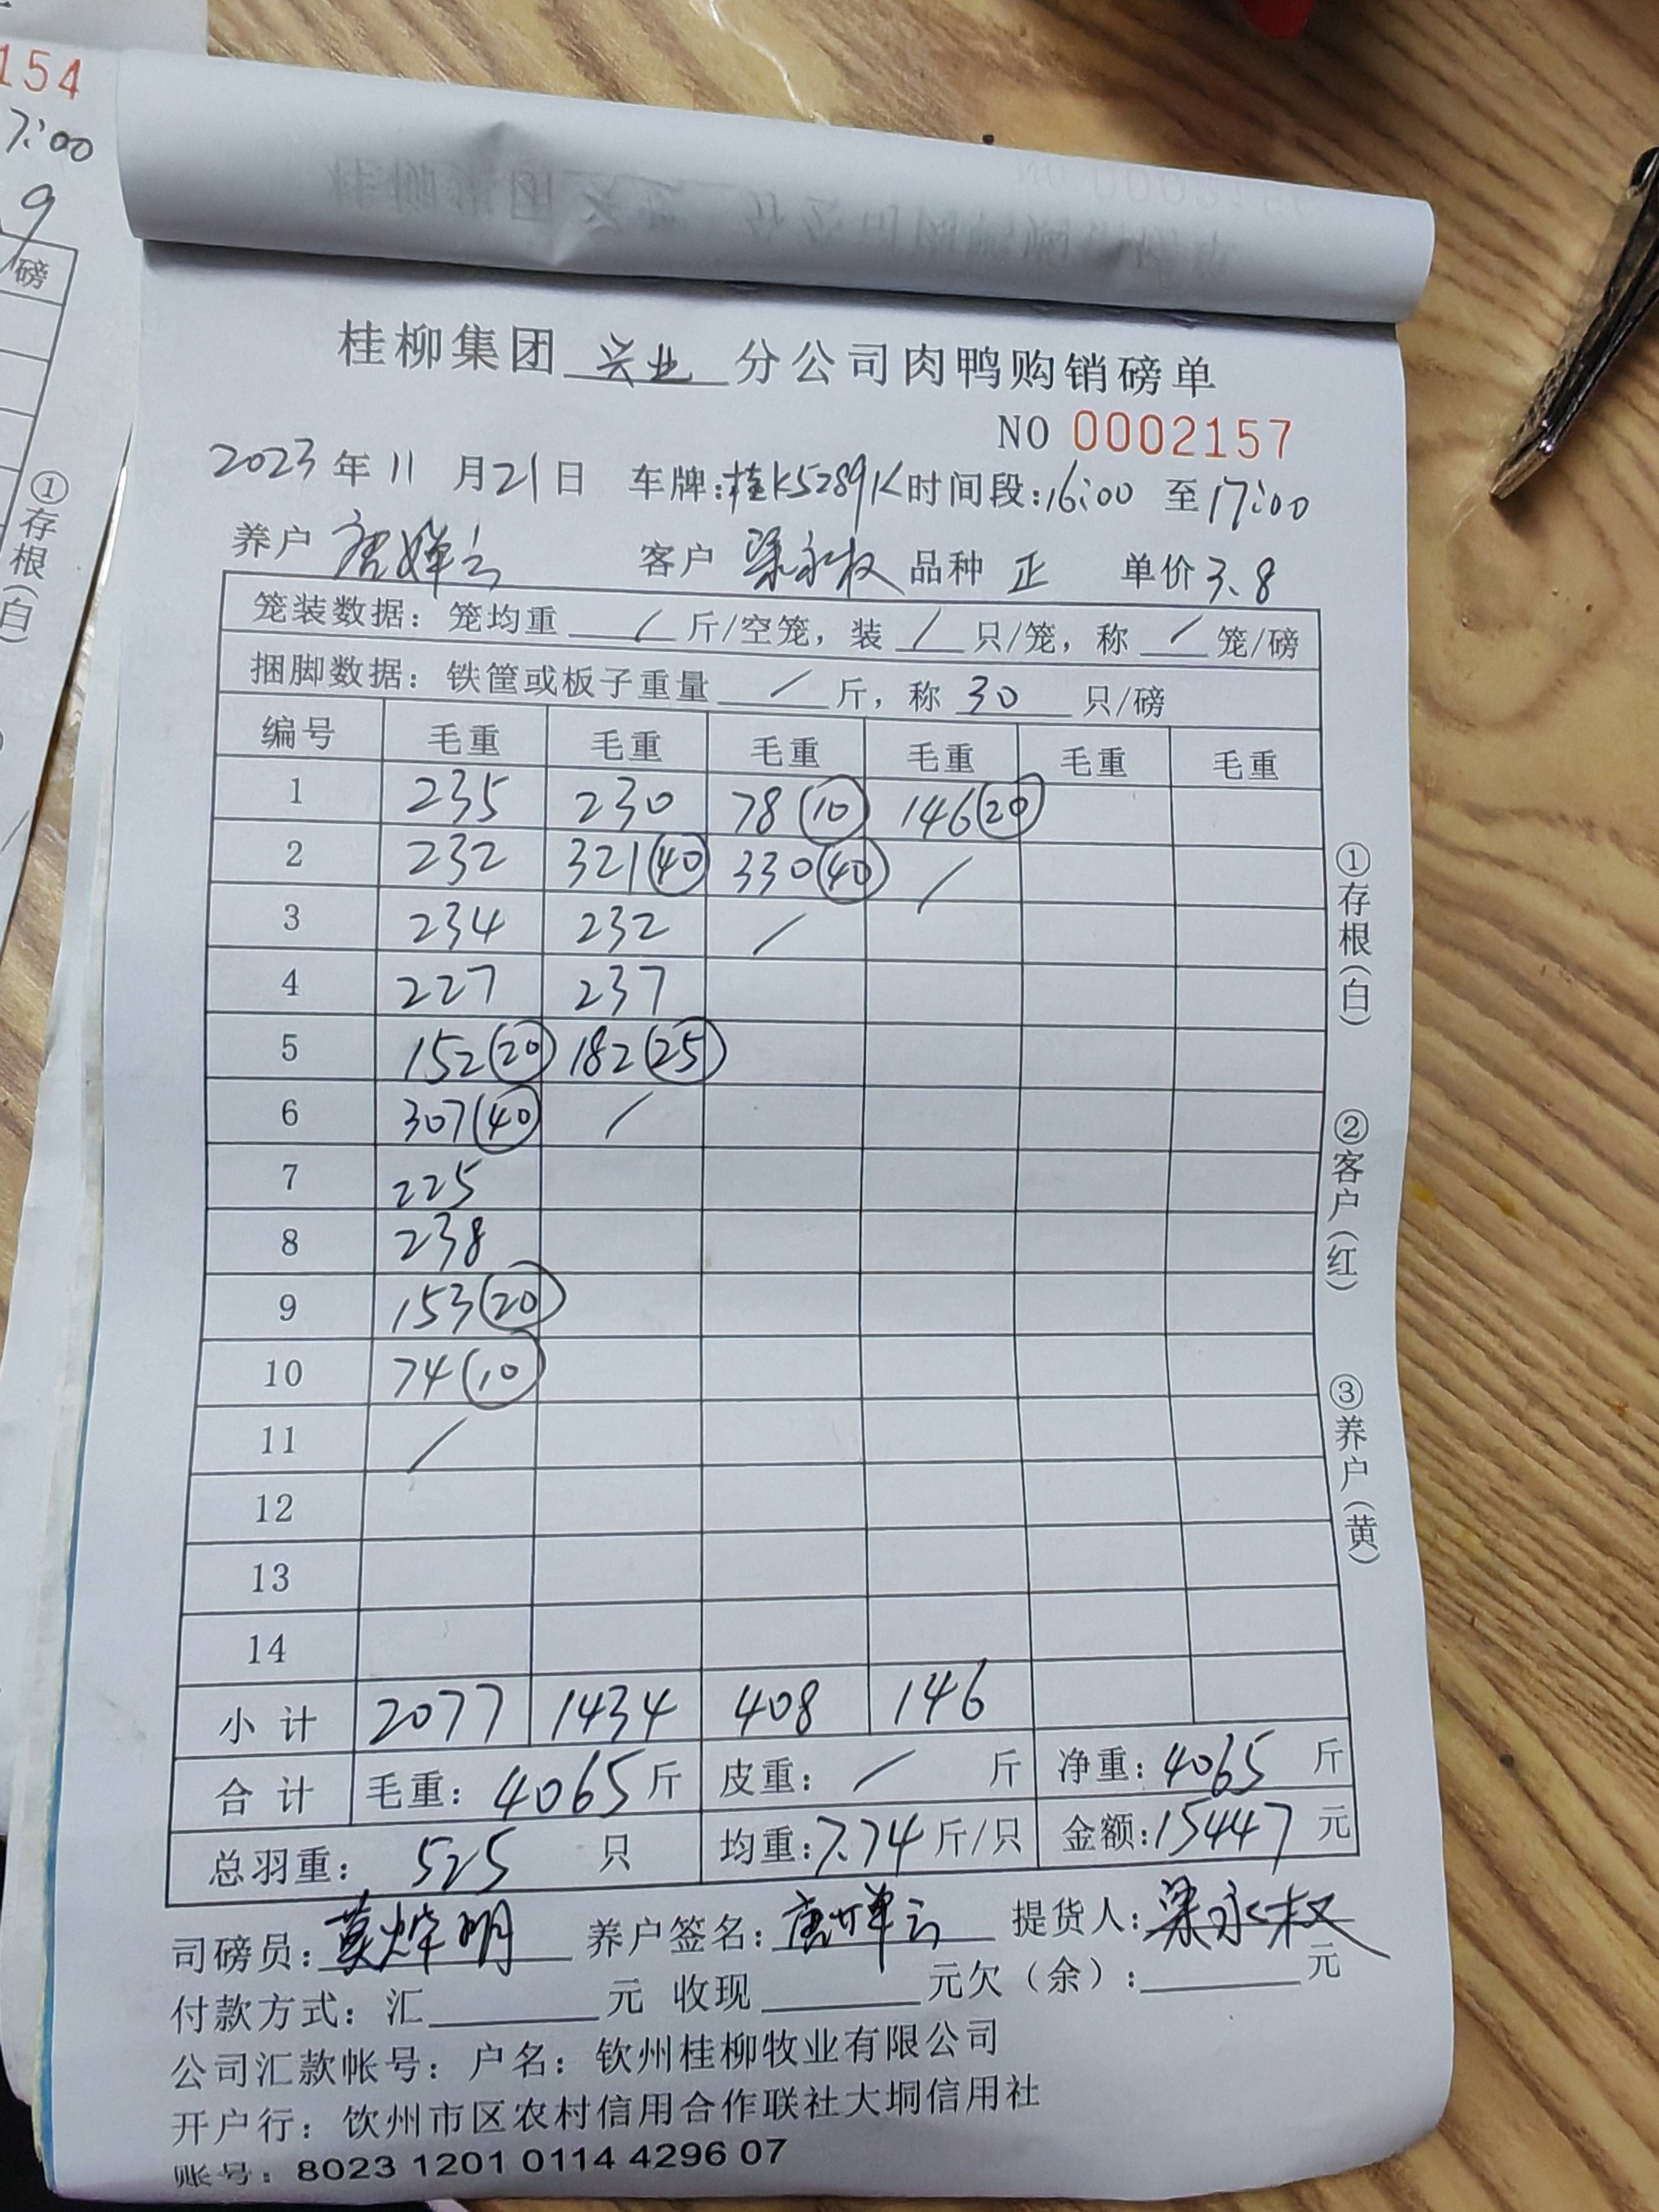 154
7:00
9
磅
①存根(白)
桂柳集团 兴业 分公司肉鸭购销磅单
NO 0002157
2023年11月21日 车牌:桂K5289K 时间段:16:00 至17:00
养户 唐婵云 客户 梁永权 品种 正 单价3.8
笼装数据：笼均重 / 斤/空笼，装 / 只/笼，称 / 笼/磅
捆脚数据：铁筐或板子重量 / 斤，称 30 只/磅
编号 毛重 毛重 毛重 毛重 毛重 毛重
1 235 230 78(10) 146(20)
2 232 321(40) 330(40) /
3 234 232 /
4 227 237
5 152(20) 182(25)
6 307(40) /
7 225
8 238
9 153(20)
10 74(10)
11 /
12
13
14
小计 2077 1434 408 146
合计 毛重：4065斤 皮重： / 斤 净重：4065 斤
总羽重： 525 只 均重:7.74斤/只 金额:15447 元
①存根(白)
②客户(红)
③养户(黄)
司磅员：莫烨明 养户签名：唐婵云 提货人：梁永权
付款方式：汇 元 收现 元欠（余）： 元
公司汇款帐号：户名：钦州桂柳牧业有限公司
开户行：钦州市区农村信用合作联社大垌信用社
账号：8023 1201 0114 4296 07